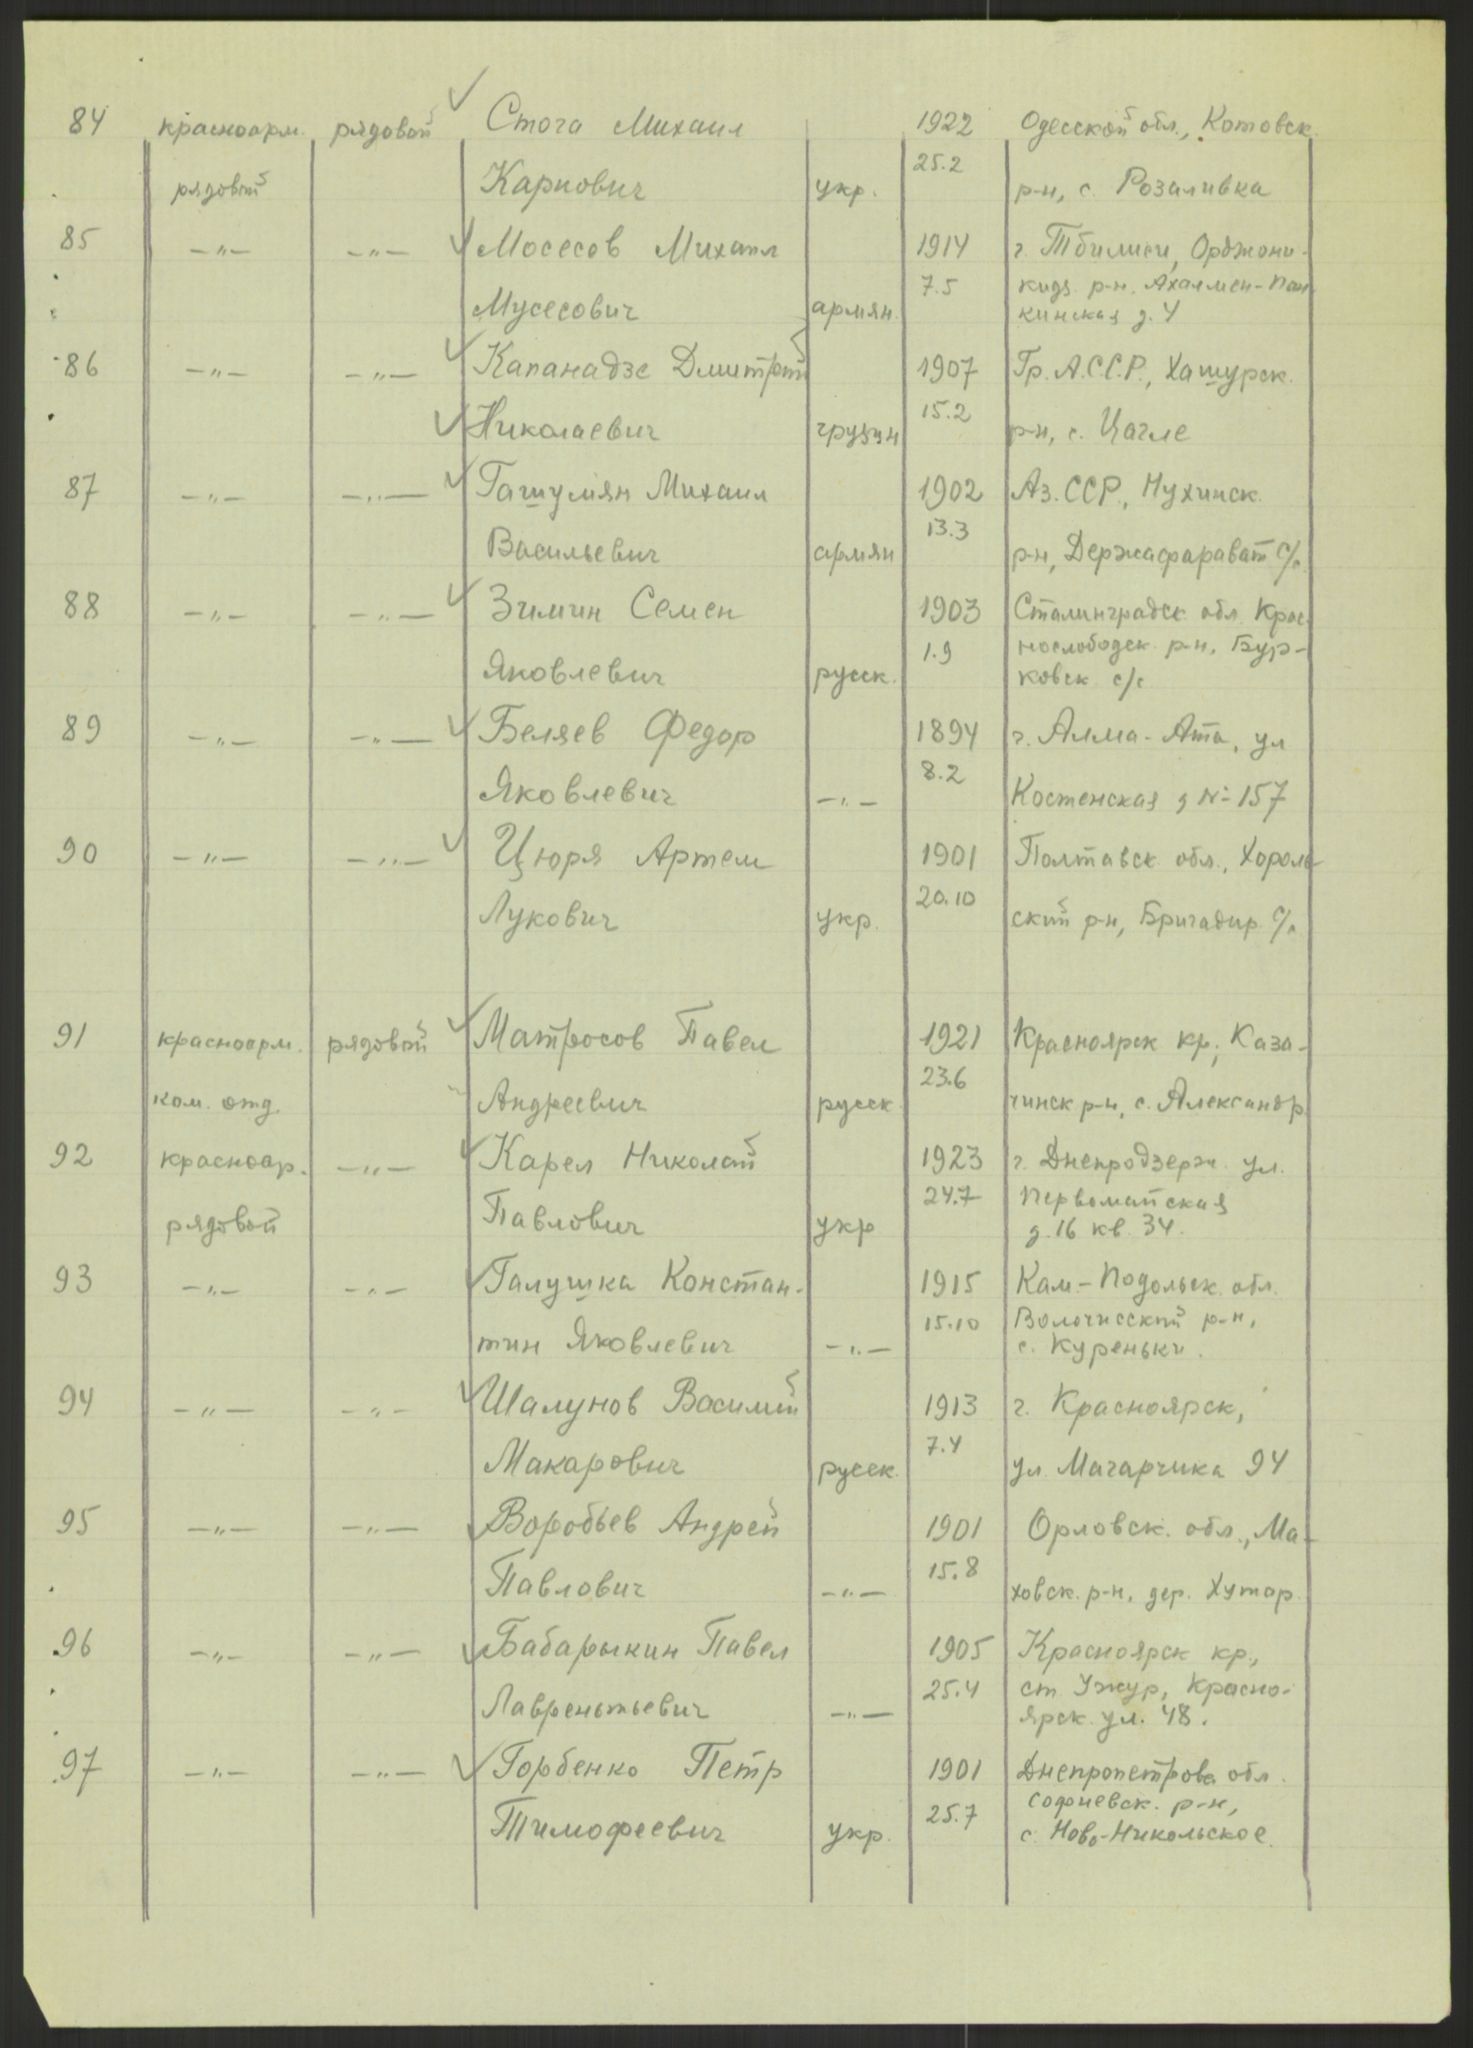 84 красноарм. рядовой Стога Михаил 1922 Одесской обл., Котовск.
рядовой Карпович укр. 25.2 р-н, с. Розаливка
85 —"— —"— Мосесов Михаил 1914 г. Тбилиси, Орджони-
7.5 кидз. р-н. Ахалмен-Пан
Мусесович армян. кинская д. 4
86 —"— —"— Капанадзе Дмитрий 1907 Гр. А.С.С.Р., Хашурск.
Николаевич грузин 15.2 р-н, с. Цагле
87 —"— —"— Гашумян Михаил 1902 Аз. ССР, Нухинск.
Васильевич армян 13.3 р-н, Держафарават с/с
88 —"— —"— Зимин Семен 1903 Сталинградск. обл. Крас
1.9 нослободск. р-н, Бур-
Яковлевич русск. ковск с/с
89 —"— —"— Беляев Федор 1894 г. Алма-Ата, ул
Яковлевич —"— 8.2 Костенская д № 157
90 —"— —"— Цюря Артем 1901 Полтавск обл., Хороль-
Лукович укр. 20.10 ский р-н, Бригадир. с/с
91 красноарм. рядовой Матросов Павел 1921 Красноярск кр., Каза-
ком. отд. Андреевич русск. 23.6 чинск р-н, с. Александр
92 красноар. —"— Карел Николай 1923 г. Днепродзерж. ул.
24.7 Первомайская
рядовой Павлович укр д. 16 кв. 34.
93 —"— —"— Галушка Констан- 1915 Кам-Подольск. обл.
15.10 Волочисский р-н,
тин Яковлевич —"— с. Куреньки.
94 —"— —"— Шалунов Василий 1913 г. Красноярск,
Макарович русск. 7.4 ул. Магарчика 94
95 —"— —"— Воробьев Андрей 1901 Орловск. обл., Ма-
Павлович —"— 15.8 ховск. р-н, дер. Хутор.
96 —"— —"— Бабарыкин Павел 1905 Красноярск кр.,
25.4 ст. Ужур, Красно-
Лаврентьевич —"— ярск. ул. 48.
97 —"— —"— Горбенко Петр 1901 Днепропетровс обл.
25.7 Софиевск. р-н,
Тимофеевич укр. с. Ново-Никольское.